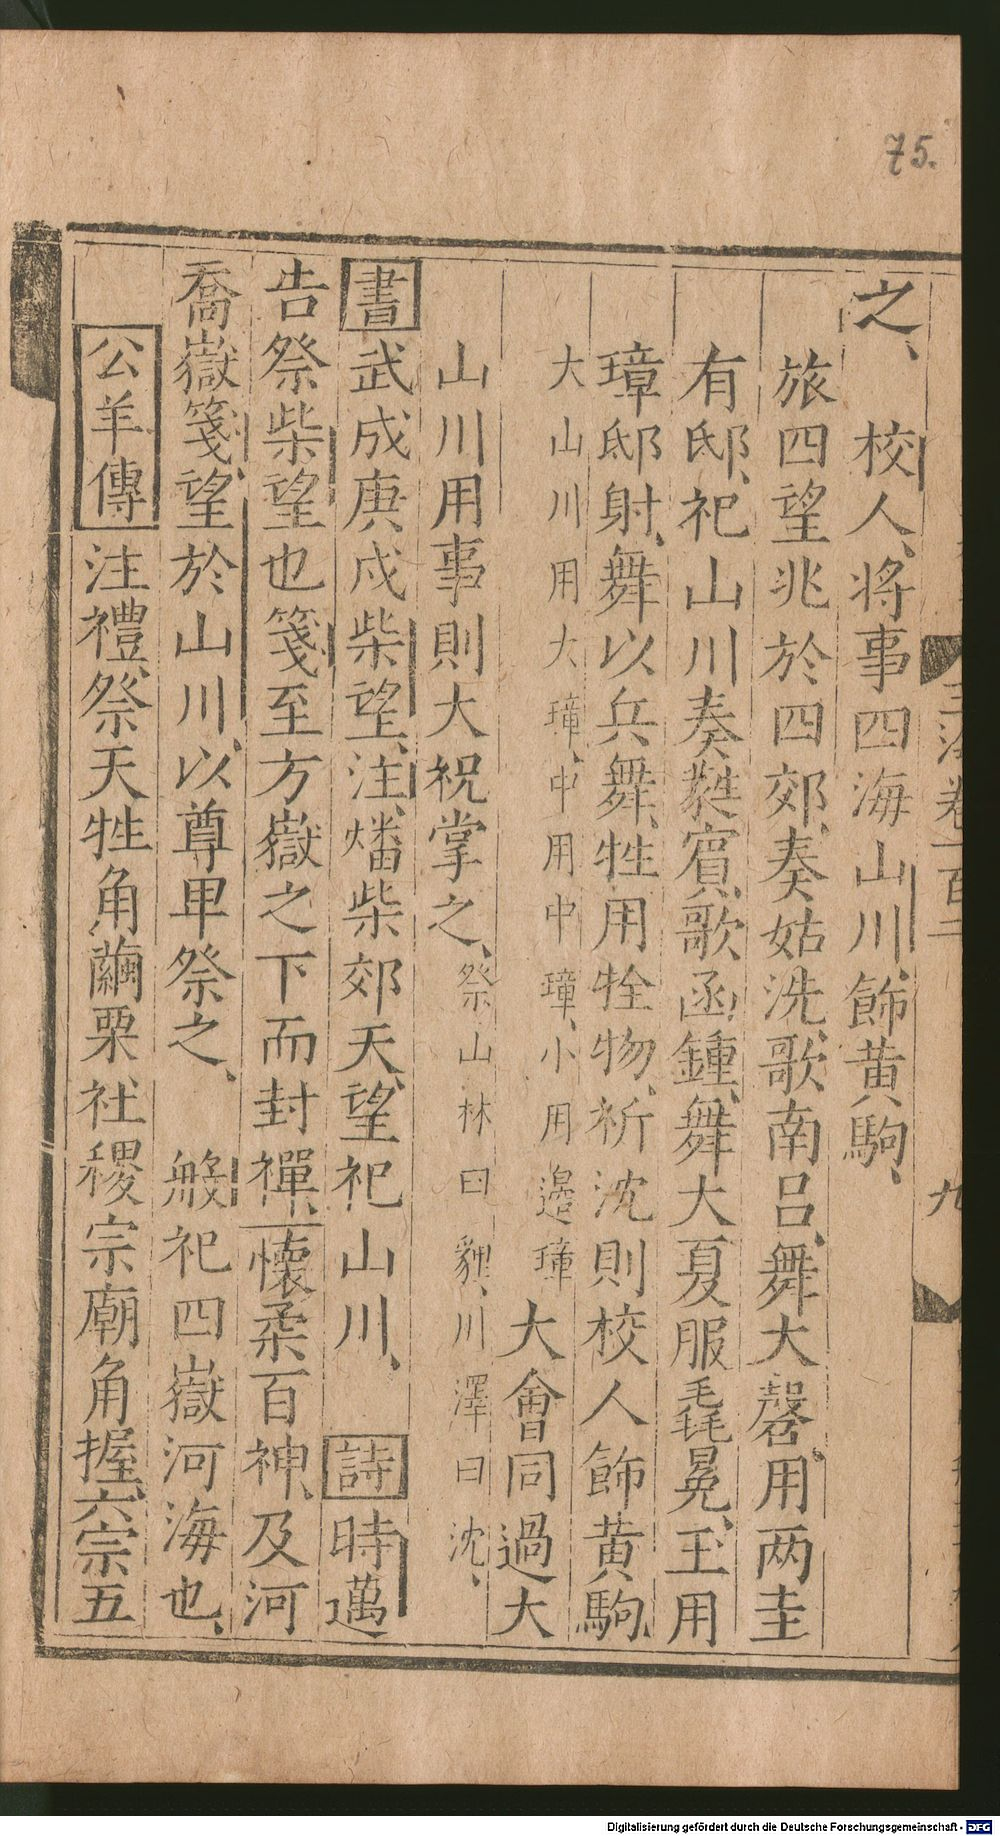 75.
之、 校人、将事四海山川、飾黄駒、
旅四望兆於四郊、奏姑洗、歌南吕、舞大磬、用两圭
有邸、祀山川奏蕤賓、歌函鍾、舞大夏服毳冕、玉用
璋邸射、舞以兵舞、牲用牷物、祈沈則校人飾黄駒、
大山川用大璋、中用中璋、小用邊璋 大會同過大
山川用事則大祝掌之、祭山林曰貍、川澤曰沈、
書武成庚戍柴望、注、燔柴郊天、望祀山川、 詩時邁
告祭柴望也箋至方嶽之下而封禪、懷柔百神、及河
喬嶽箋、望於山川、以尊卑祭之、 般祀四嶽河海也、
公羊傳注禮、祭天牲角繭栗、社稷宗廟角握、六宗五
卷一百二
九
Digitalisierung gefördert durch die Deutsche Forschungsgemeinschaft - DFG